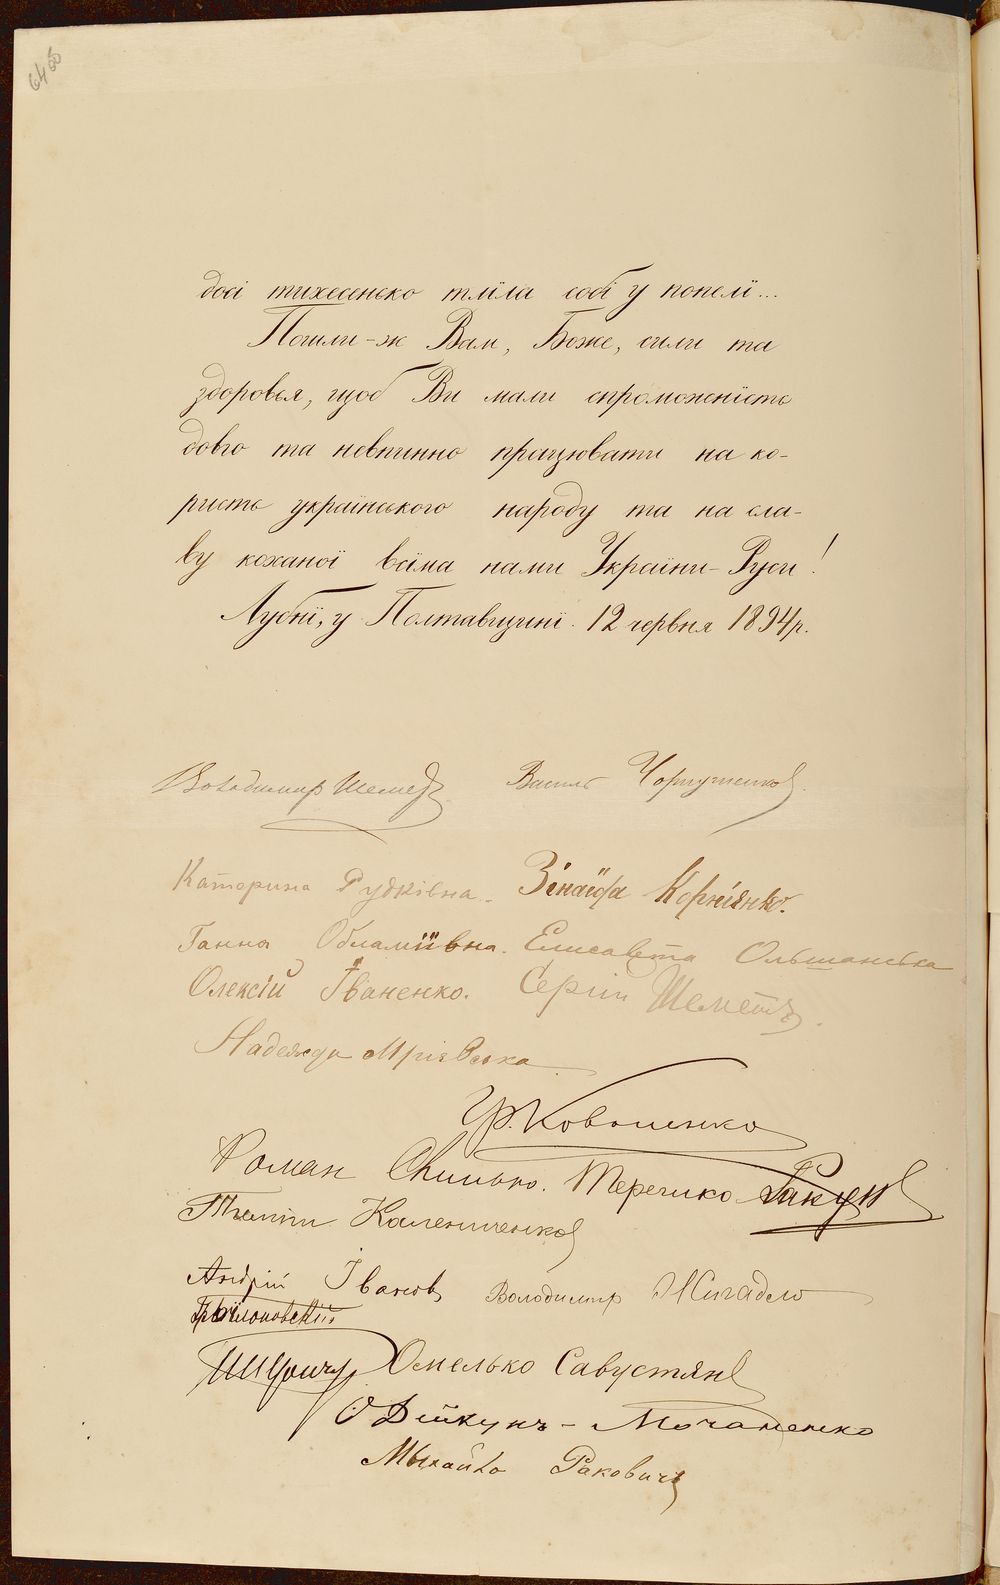 досі тихесенько тліла собі у попелі...
Пошли-ж Вам, Боже, сили та
здоровья, щоб Ви мали спроможність
довго та невпинно працювати на ко-
ристь українського народу та на сла-
ву коханої всїма нами України-Руси!
Лубнї, у Полтавщинї. 12 червня 1894 р.
Володимир Шемет Василь
Катерина Рудківна. Зінаїда Корнієнко.
Ганна Єлисавета Ольшанська
Олексій Іваненко. Сергій Шеметъ.
Надежда
Гр. Коваленко
Роман Терешко
Калениченко
Андрій Іванов Володимир Жигадло
Омелько Савустян
О Дейкунъ - Мочаненко
Михайло Ракович